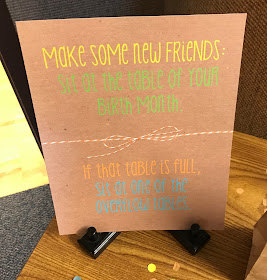 Make some new friends:
sit at the table of your
birth month.
If that table is full,
sit at one of the
overflow tables.